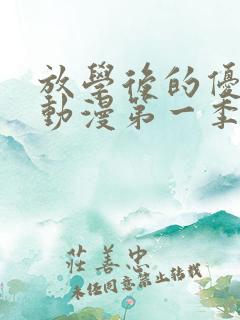 放學後的優
動漫第一季
莊善忠
未任同意禁止轉載